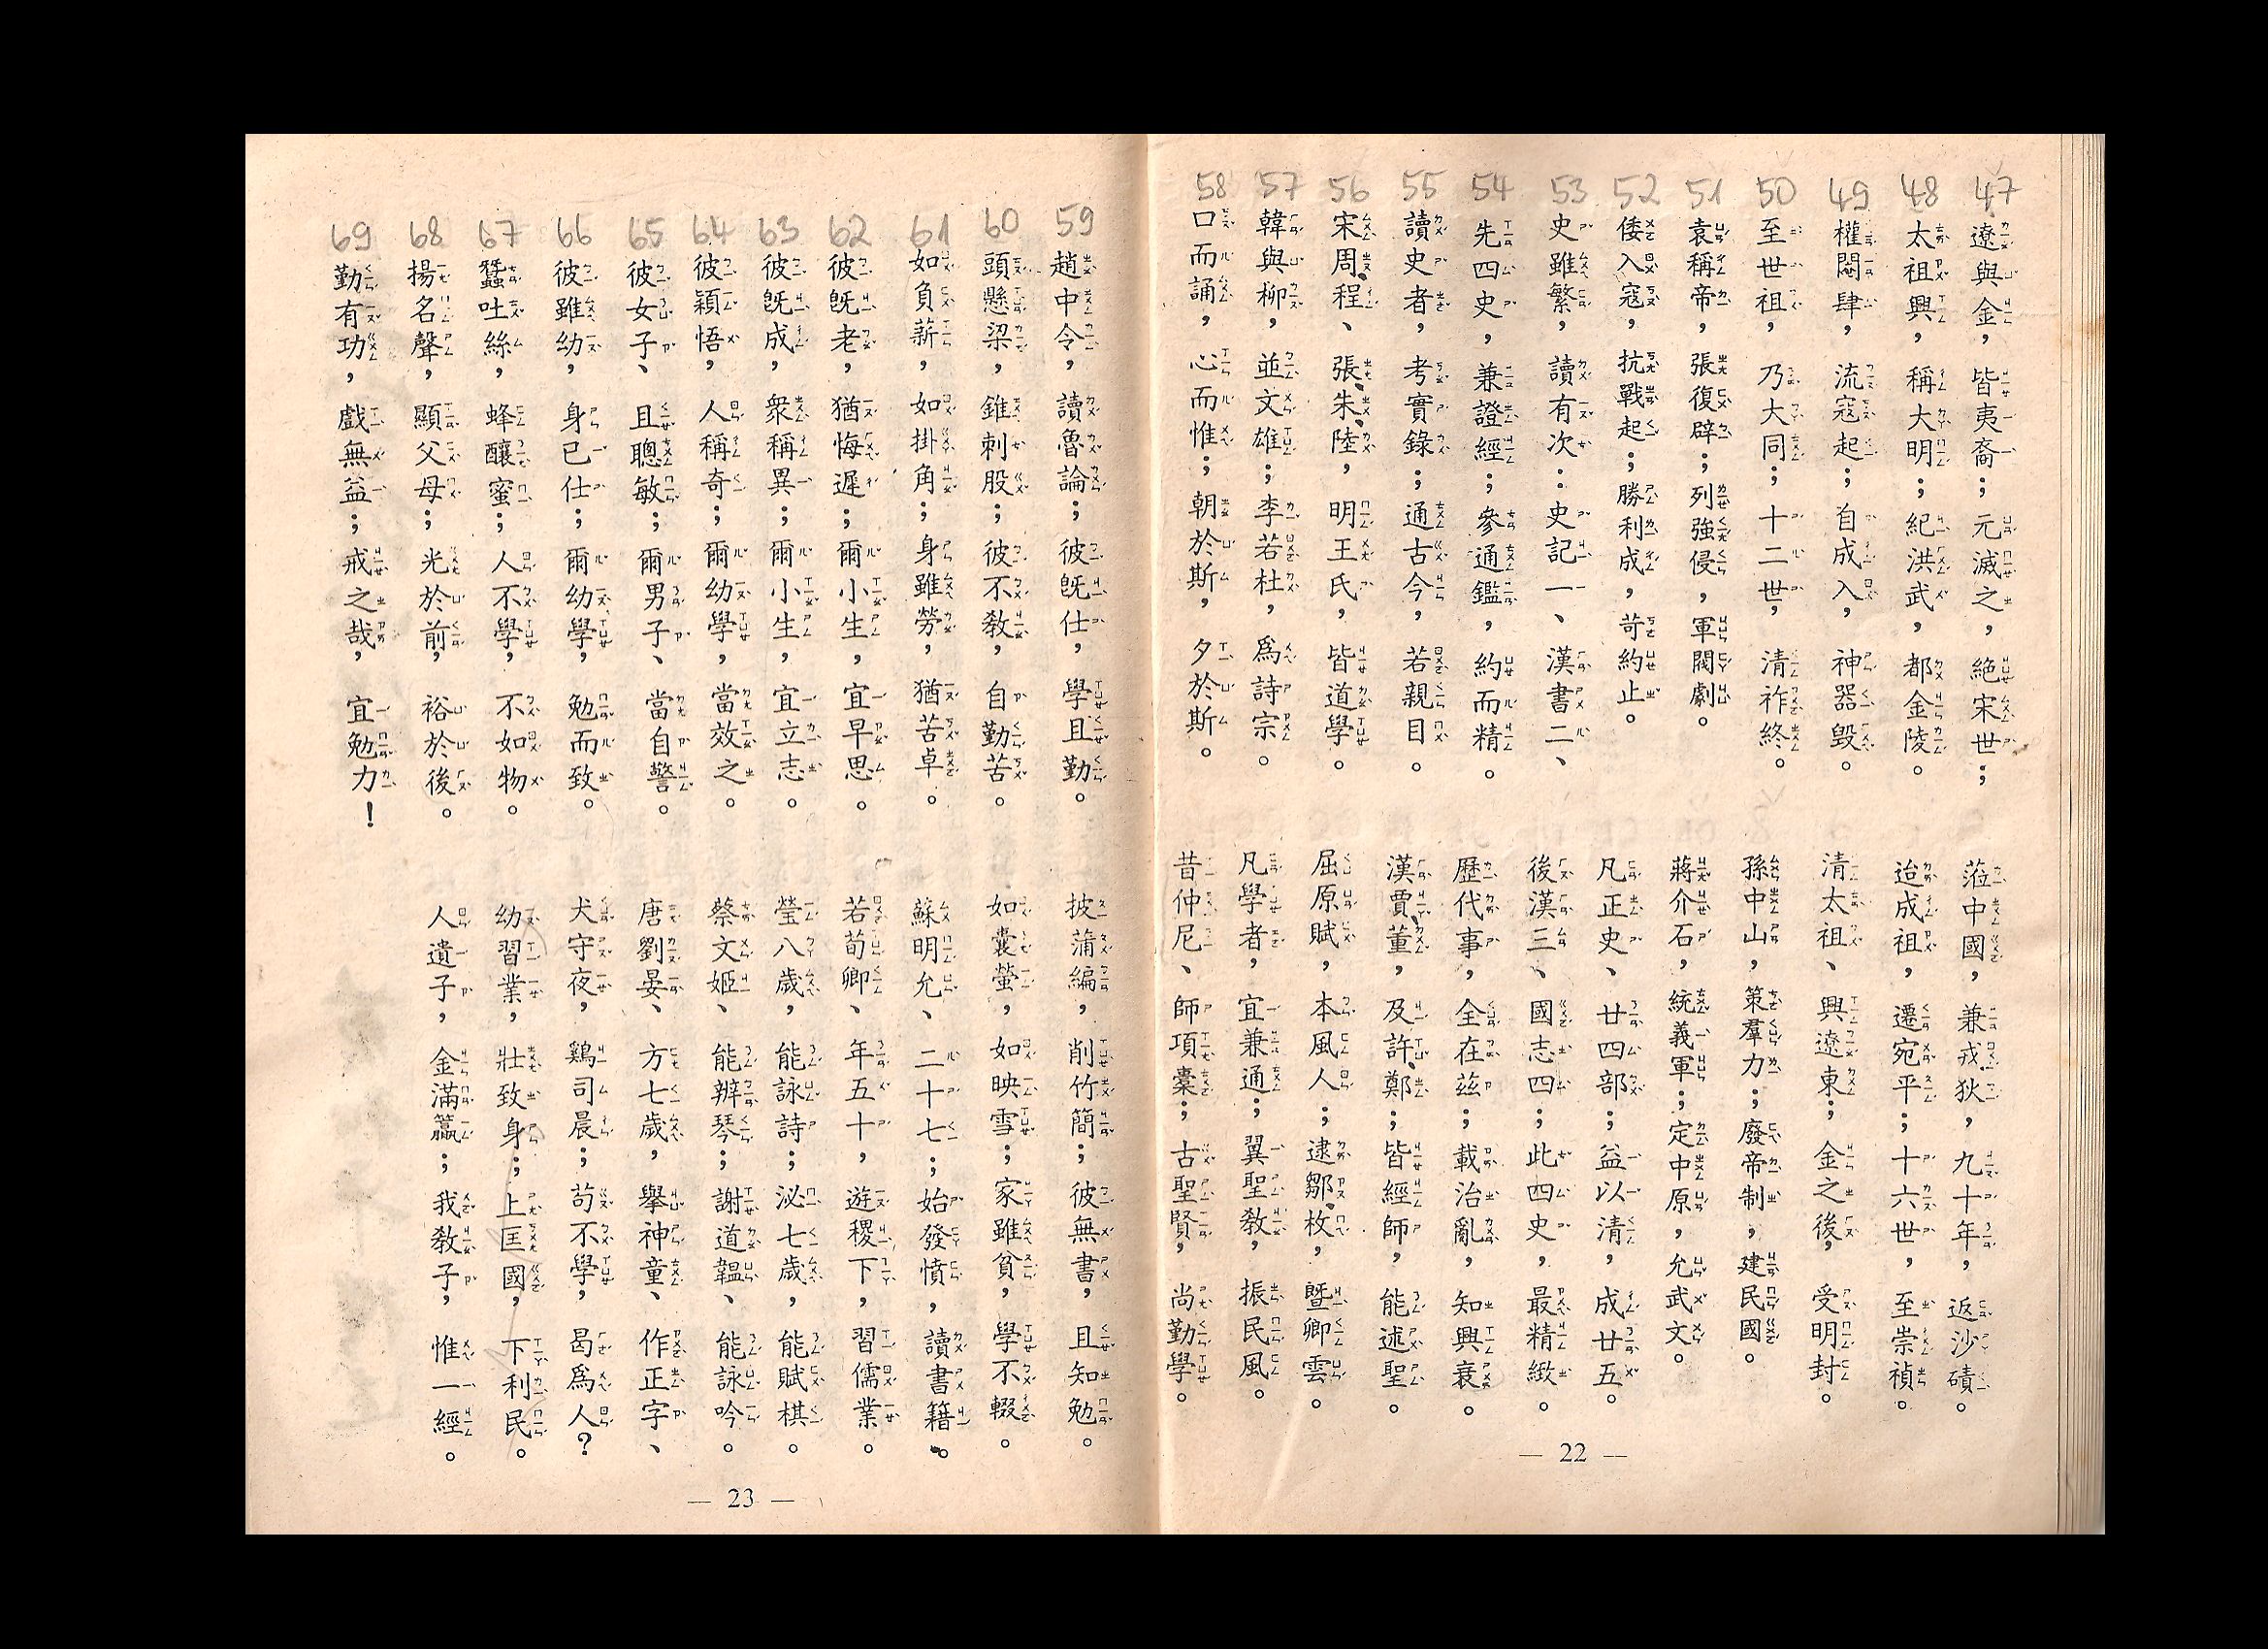 47
遼與金，皆夷裔；元滅之，絕宋世；
蒞中國，兼戎狄，九十年，返沙磧。
48
太祖興，稱大明；紀洪武，都金陵。
迨成祖，遷宛平；十六世，至崇禎。
49
權閹肆，流寇起；自成入，神器毀。
清太祖、興遼東；金之後，受明封。
50
至世祖，乃大同；十二世，清祚終。
孫中山，策羣力；廢帝制，建民國。
51
袁稱帝，張復辟；列強侵，軍閥劇。
蔣介石，統義軍；定中原，允武文。
52
倭入寇，抗戰起；勝利成，苛約止。
凡正史、廿四部；益以清，成廿五。
53
史雖繁，讀有次：史記一、漢書二、
後漢三、國志四；此四史，最精緻。
54
先四史，兼證經；參通鑑，約而精。
歷代事，全在茲；載治亂，知興衰。
55
讀史者，考實錄；通古今，若親目。
漢賈、董，及許、鄭；皆經師，能述聖。
56
宋周、程、張、朱、陸，明王氏，皆道學。
屈原賦，本風人；逮鄒、枚，暨卿雲。
57
韓與柳，並文雄；李若杜，爲詩宗。
凡學者，宜兼通；翼聖教，振民風。
58
口而誦，心而惟；朝於斯，夕於斯。
昔仲尼、師項橐；古聖賢，尚勤學。
— 22 —
59
趙中令，讀魯論；彼旣仕，學且勤。
披蒲編，削竹簡；彼無書，且知勉。
60
頭懸梁，錐刺股；彼不教，自勤苦。
如囊螢，如映雪；家雖貧，學不輟。
61
如負薪，如掛角；身雖勞，猶苦卓。
蘇明允、二十七；始發憤，讀書籍。
62
彼旣老，猶悔遲；爾小生，宜早思。
若荀卿、年五十，遊稷下，習儒業。
63
彼旣成，衆稱異；爾小生，宜立志。
瑩八歲，能詠詩；泌七歲，能賦棋。
64
彼穎悟，人稱奇；爾幼學，當效之。
蔡文姬、能辨琴；謝道韞、能詠吟。
65
彼女子、且聰敏；爾男子、當自警。
唐劉晏、方七歲，舉神童、作正字、
66
彼雖幼，身已仕；爾幼學，勉而致。
犬守夜，鷄司晨；苟不學，曷爲人？
67
蠶吐絲，蜂釀蜜；人不學，不如物。
幼習業，壯致身；上匡國，下利民。
68
揚名聲，顯父母；光於前，裕於後。
人遺子，金滿籯；我教子，惟一經。
69
勤有功，戲無益；戒之哉，宜勉力！
— 23 —